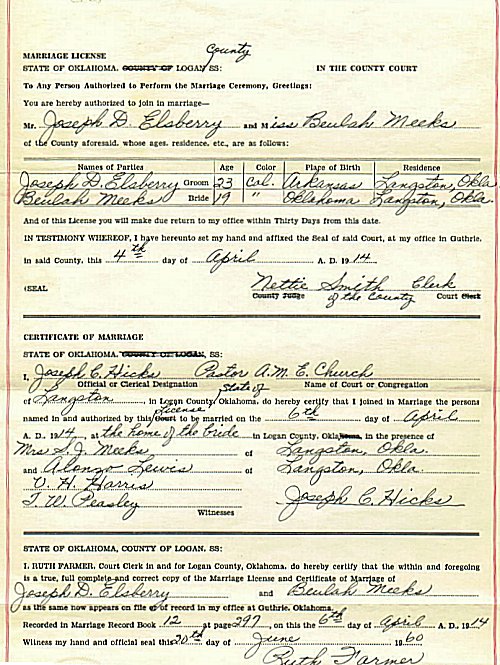 MARRIAGE LICENSE
County
STATE OF OKLAHOMA, COUNTY OF LOGAN, SS: IN THE COUNTY COURT
To Any Person Authorized to Perform the Marriage Ceremony, Greetings:
You are hereby authorized to join in marriage—
Mr. Joseph D. Elsberry and Miss Beulah Meeks
of the County aforesaid, whose ages, residence, etc., are as follows:
Names of Parties Age Color Place of Birth Residence
Joseph D. Elsberry Groom 23 Col. Arkansas Langston, Okla
Beulah Meeks Bride 19 " Oklahoma Langston, Okla.
And of this License you will make due return to my office within Thirty Days from this date.
IN TESTIMONY WHEREOF, I have hereunto set my hand and affixed the Seal of said Court, at my office in Guthrie,
in said County, this 4th day of April A. D. 1914
Nettie Smith Clerk
(SEAL County Judge of the County Court Clerk
CERTIFICATE OF MARRIAGE
STATE OF OKLAHOMA, COUNTY OF LOGAN, SS:
I, Joseph C. Hicks Pastor A.M.E. Church
Official or Clerical Designation Name of Court or Congregation
State of
of Langston, in Logan County, Oklahoma, do hereby certify that I joined in Marriage the persons
License
named in and authorized by this Court to be married on the 6th day of April
A. D. 1914, at the home of the bride in Logan County, Oklahoma, in the presence of
Mrs S. J. Meeks of Langston, Okla.
and Alonzo Lewis of Langston, Okla.
V. H. Harris
T. W. Peasley Joseph C. Hicks
Witnesses
STATE OF OKLAHOMA, COUNTY OF LOGAN, SS:
I, RUTH FARMER, Court Clerk in and for Logan County, Oklahoma, do hereby certify that the within and foregoing
is a true, full complete and correct copy of the Marriage License and Certificate of Marriage of
Joseph D. Elsberry and Beulah Meeks
as the same now appears on file of record in my office at Guthrie, Oklahoma.
Recorded in Marriage Record Book 12 at page 297, on this the 6th day of April A. D., 1914
Witness my hand and official seal this 20th day of June 1960
Ruth Farmer